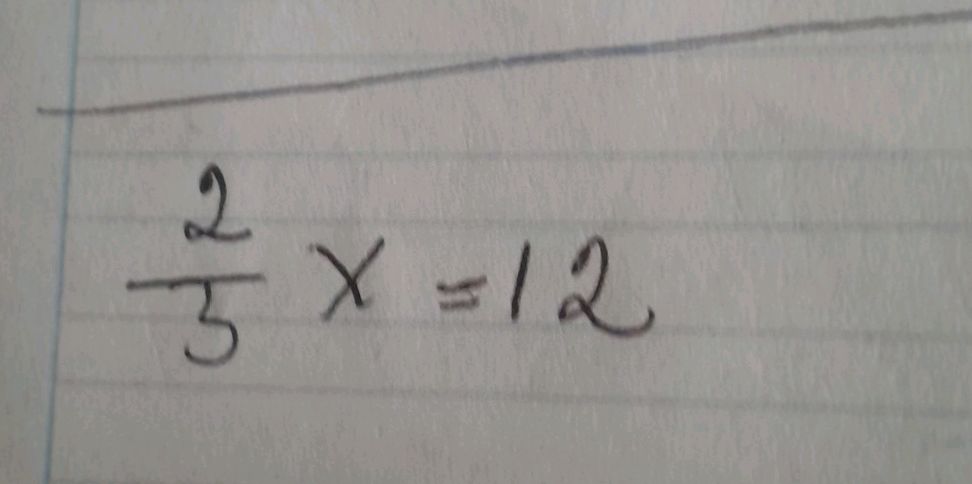 2/5 x = 12